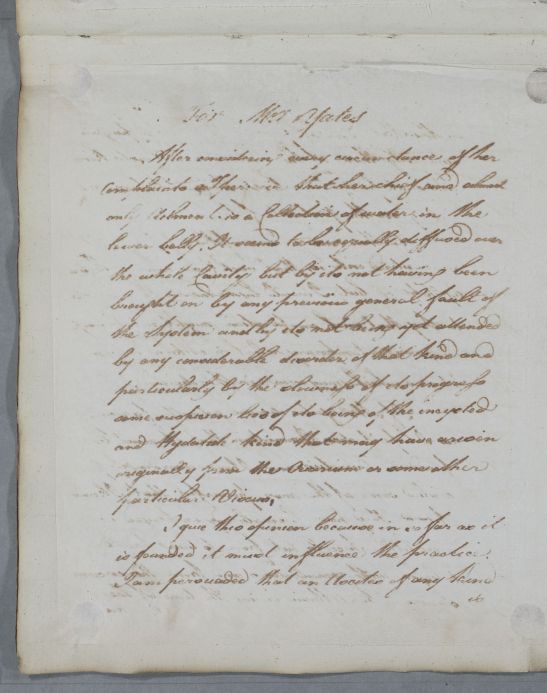 For Mrs Yates
After considering every circumstance of her
Complaints a there is that her chief and almost
only Ailment is a Collection of water in the
lower belly. It seems to be equally diffused over
the whole Cavity but by its not having been
brought on by any previous general fault of
the System and by its not being yet attended
by any considerable disorder of that kind and
particularly by the slowness of its progress
some suspicion of its being of the incysted
and Hydatid kind that may have arisen
originally from the Ovarium or some other
particular Viscus,
I give this opinion because in so far as it
is founded it must influence the practice.
I am persuaded that an Ascites of any kind
is